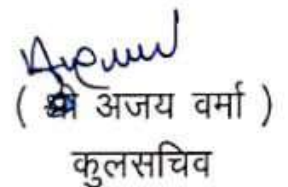 ( अजय वर्मा )
कुलसचिव